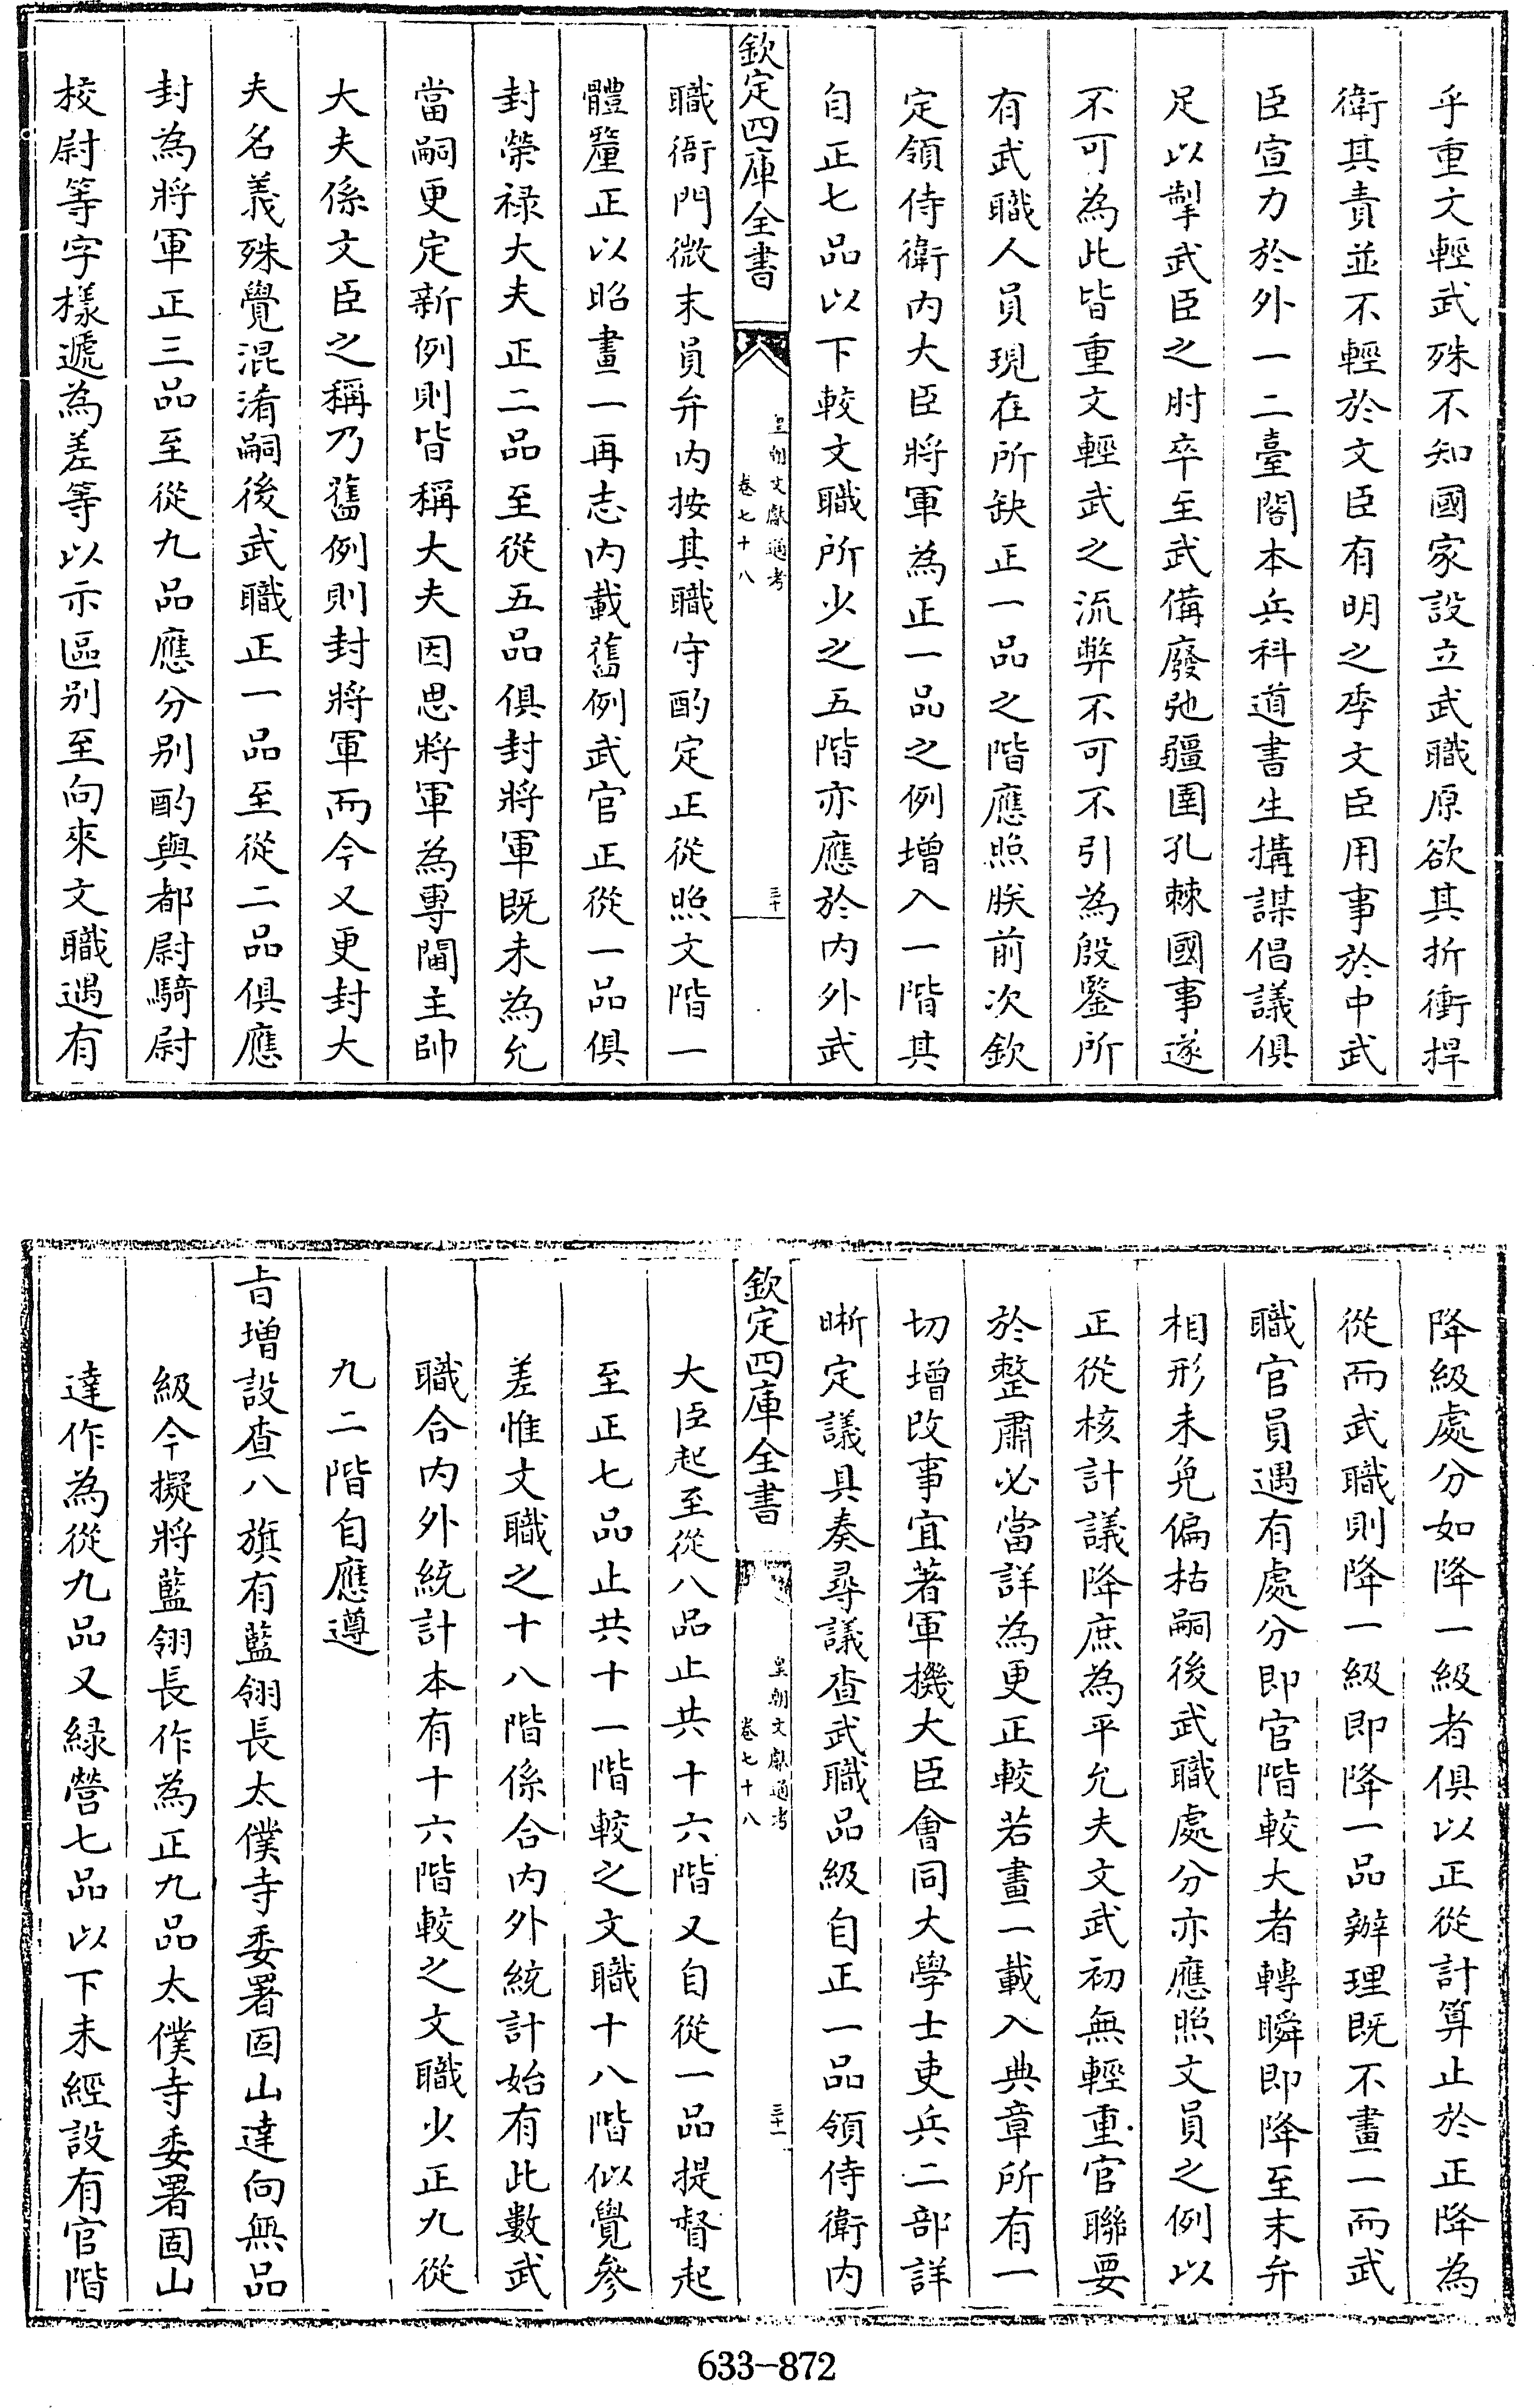 乎重文輕武殊不知國家設立武職原欲其折衝捍
衛其責並不輕於文臣有明之季文臣用事於中武
臣宣力於外一二臺閣本兵科道書生搆謀倡議俱
足以掣武臣之肘卒至武備廢弛疆圉孔棘國事遂
不可為此皆重文輕武之流弊不可不引為殷鑒所
有武職人員現在所缺正一品之階應照朕前次欽
定領侍衛内大臣將軍為正一品之例增入一階其
自正七品以下較文職所少之五階亦應於内外武
欽定四庫全書
皇朝文獻通考
卷七十八
三十
職衙門微末員弁内按其職守酌定正從照文階一
體釐正以昭畫一再志内載舊例武官正從一品俱
封榮祿大夫正二品至從五品俱封將軍既未為允
當嗣更定新例則皆稱大夫因思將軍為專閫主帥
大夫係文臣之稱乃舊例則封將軍而今又更封大
夫名義殊覺混淆嗣後武職正一品至從二品俱應
封為將軍正三品至從九品應分别酌與都尉騎尉
校尉等字樣遞為差等以示區别至向來文職遇有
降級處分如降一級者俱以正從計算止於正降為
從而武職則降一級即降一品辦理既不畫一而武
職官員遇有處分即官階較大者轉瞬即降至末弁
相形未免偏枯嗣後武職處分亦應照文員之例以
正從核計議降庶為平允夫文武初無輕重官聯要
於整肅必當詳為更正較若畫一載入典章所有一
切增改事宜著軍機大臣會同大學士吏兵二部詳
晰定議具奏尋議查武職品級自正一品領侍衛内
欽定四庫全書
皇朝文獻通考
卷七十八
三十一
大臣起至從八品止共十六階又自從一品提督起
至正七品止共十一階較之文職十八階似覺參
差惟文職之十八階係合内外統計始有此數武
職合内外統計本有十六階較之文職少正九從
九二階自應遵
旨增設查八旗有藍翎長太僕寺委署固山達向無品
級今擬將藍翎長作為正九品太僕寺委署固山
達作為從九品又緑營七品以下未經設有官階
633-872